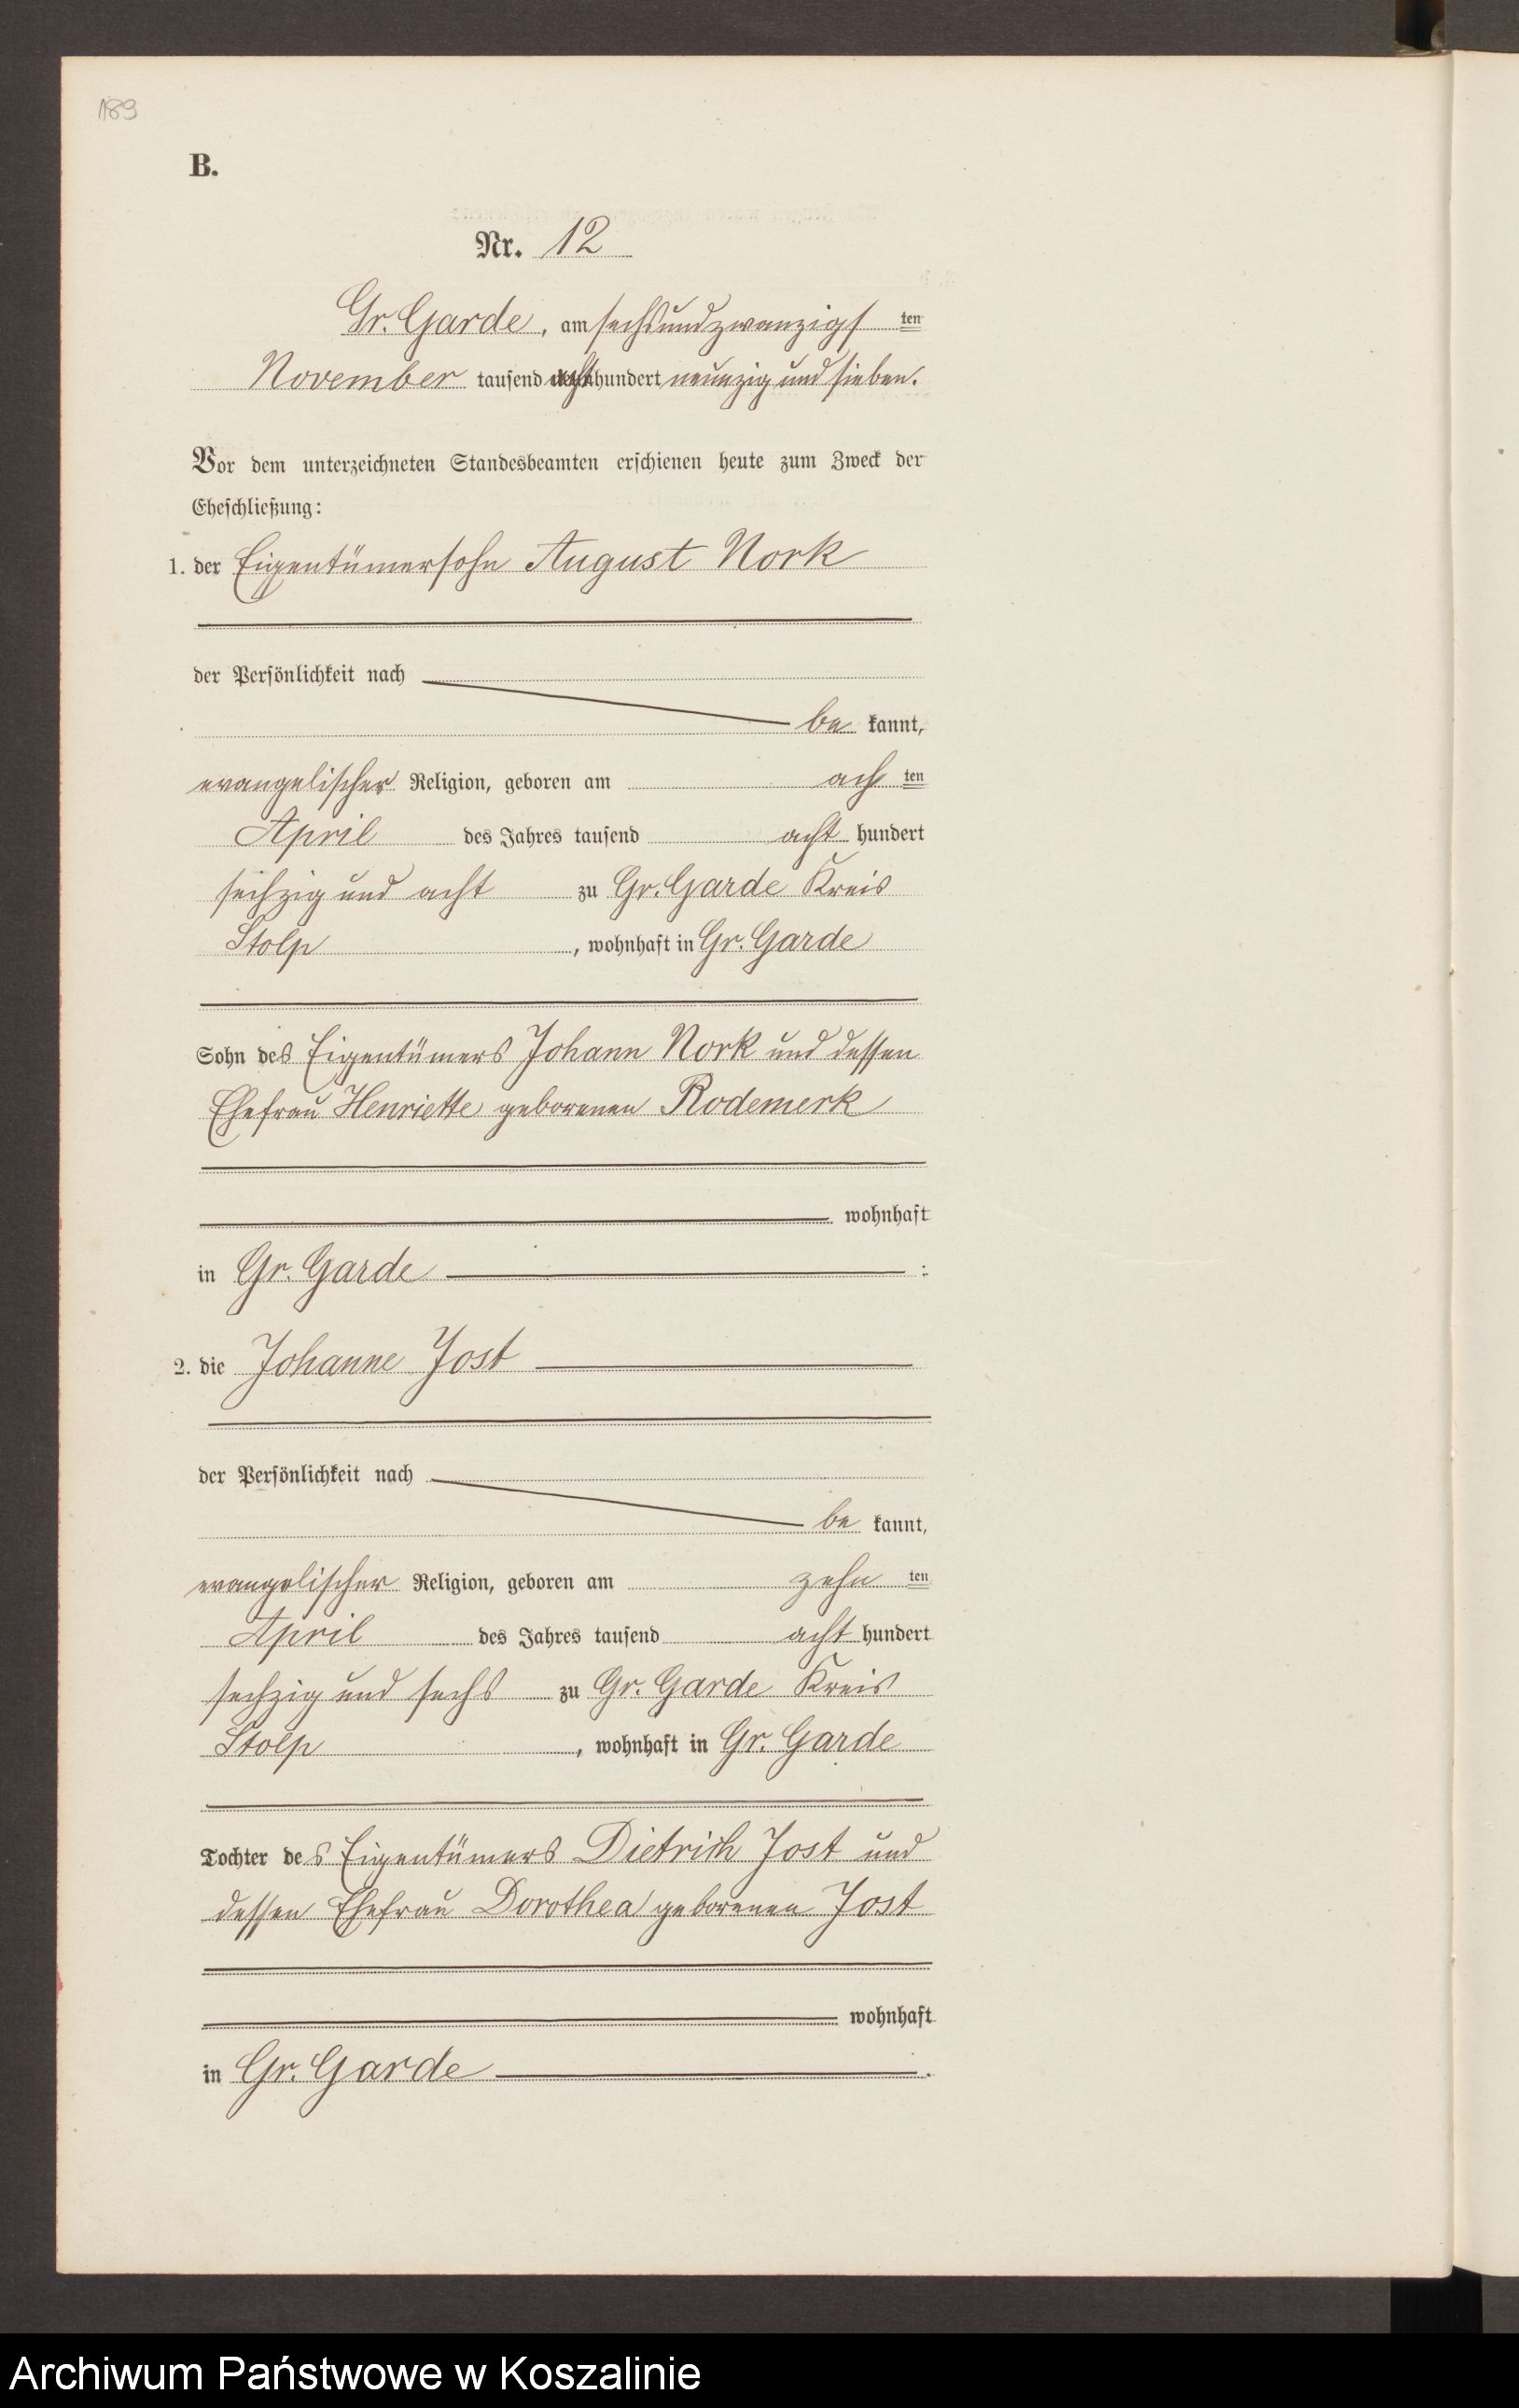 189
B.
Nr. 12
Gr. Garde, am sechsundzwanzigsten
November tausend achthundert neunzig und sieben.
Vor dem unterzeichneten Standesbeamten erschienen heute zum Zweck der
Eheschließung:
1. der Eigentümersohn August Nork
der Persönlichkeit nach
be kannt,
evangelischer Religion, geboren am achten
April des Jahres tausend acht hundert
sechzig und acht zu Gr. Garde Kreis
Stolp, wohnhaft in Gr. Garde
Sohn des Eigentümers Johann Nork und dessen
Ehefrau Henriette geborenen Rodemerk
wohnhaft
in Gr. Garde :
2. die Johanne Jost
der Persönlichkeit nach
be kannt,
evangelischer Religion, geboren am zehn ten
April des Jahres tausend acht hundert
sechzig und sechs zu Gr. Garde Kreis
Stolp, wohnhaft in Gr. Garde
Tochter des Eigentümers Dietrich Jost und
dessen Ehefrau Dorothea geborenen Jost
wohnhaft
in Gr. Garde .
Archiwum Państwowe w Koszalinie